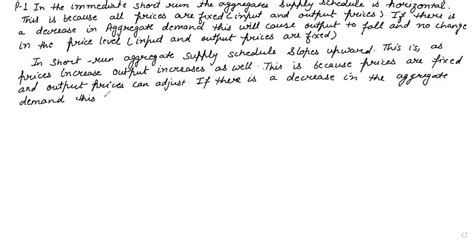 P-1 In the immediate short run the aggregate supply schedule is horizontal.
This is because all prices are fixed (input and output prices). If there is
a decrease in Aggregate demand this will cause output to fall and no change
in the price level (input and output prices are fixed)
In Short-run aggregate supply schedule slopes upward. This is, as
prices increase output increases as well. This is because prices are fixed
and output prices can adjust. If there is a decrease in the aggregate
demand this